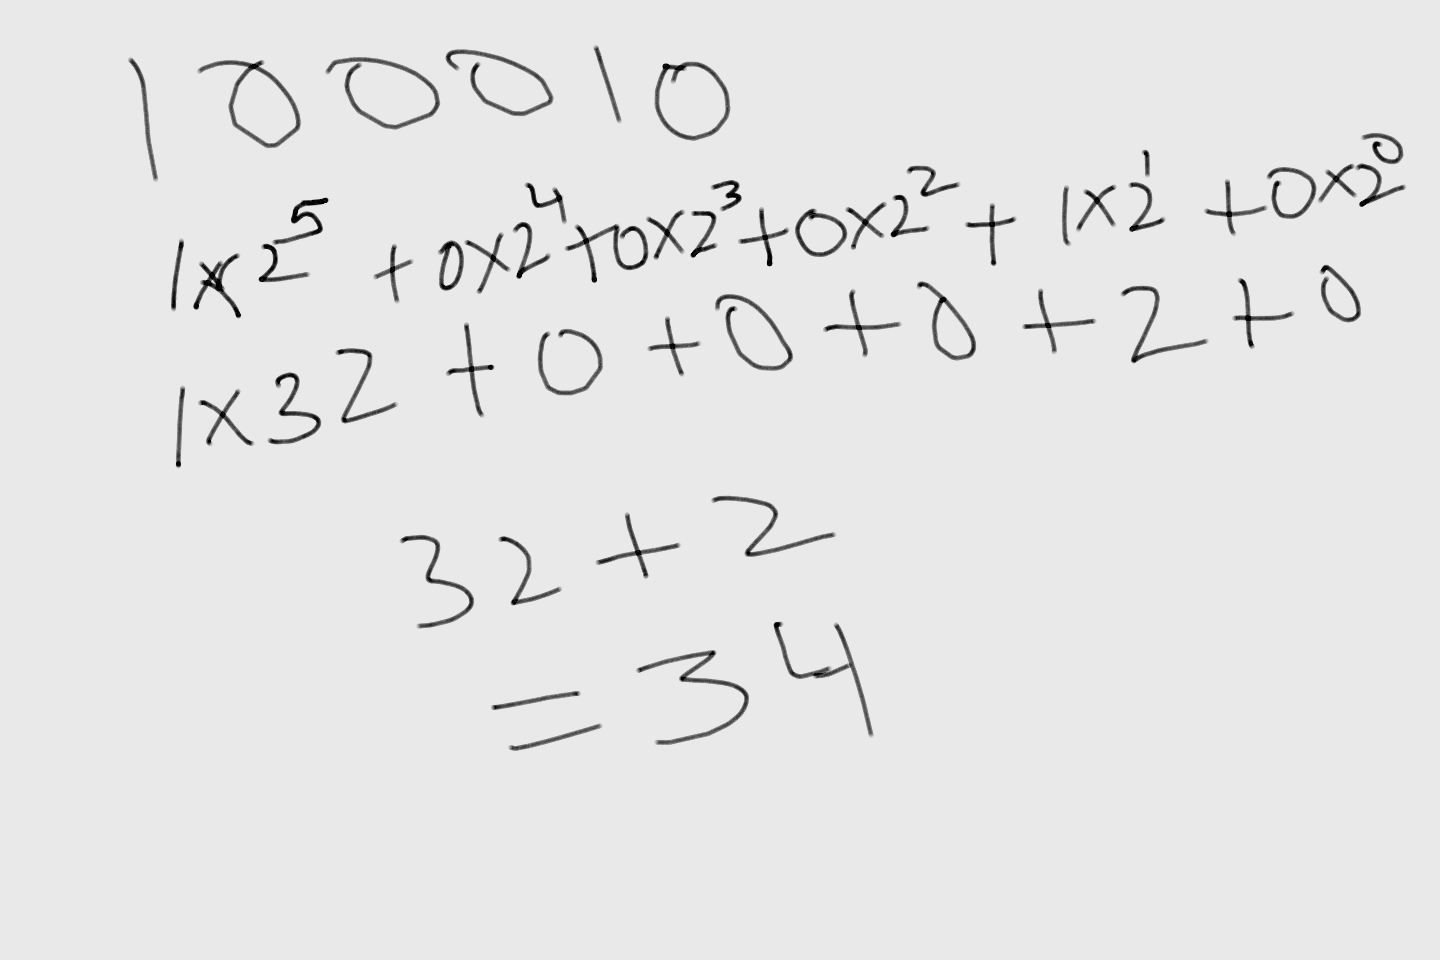 100010
1×2⁵ + 0×2⁴ + 0×2³ + 0×2² + 1×2¹ + 0×2⁰
1×32 + 0 + 0 + 0 + 2 + 0
32 + 2
= 34